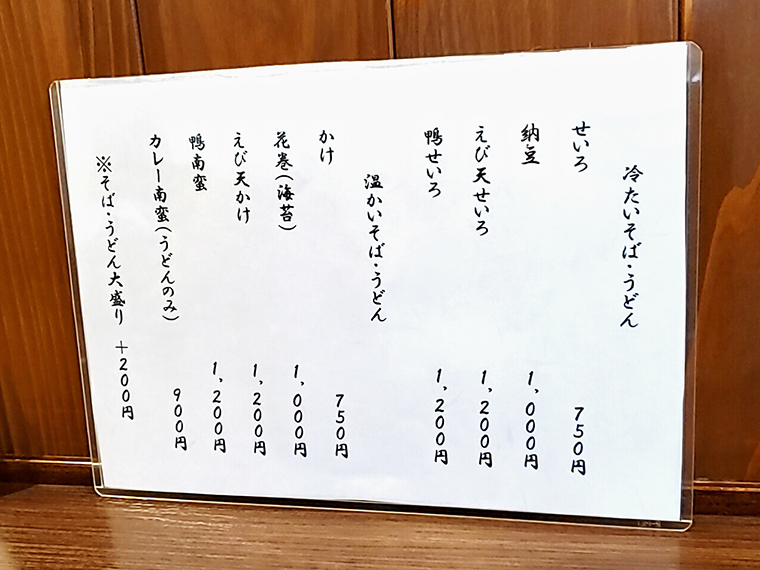 冷たいそば・うどん
せいろ 750円
納豆 1,000円
えび天せいろ 1,200円
鴨せいろ 1,200円
温かいそば・うどん
かけ 750円
花巻(海苔) 1,000円
えび天かけ 1,200円
鴨南蛮 1,200円
カレー南蛮(うどんのみ) 900円
※そば・うどん大盛り +200円